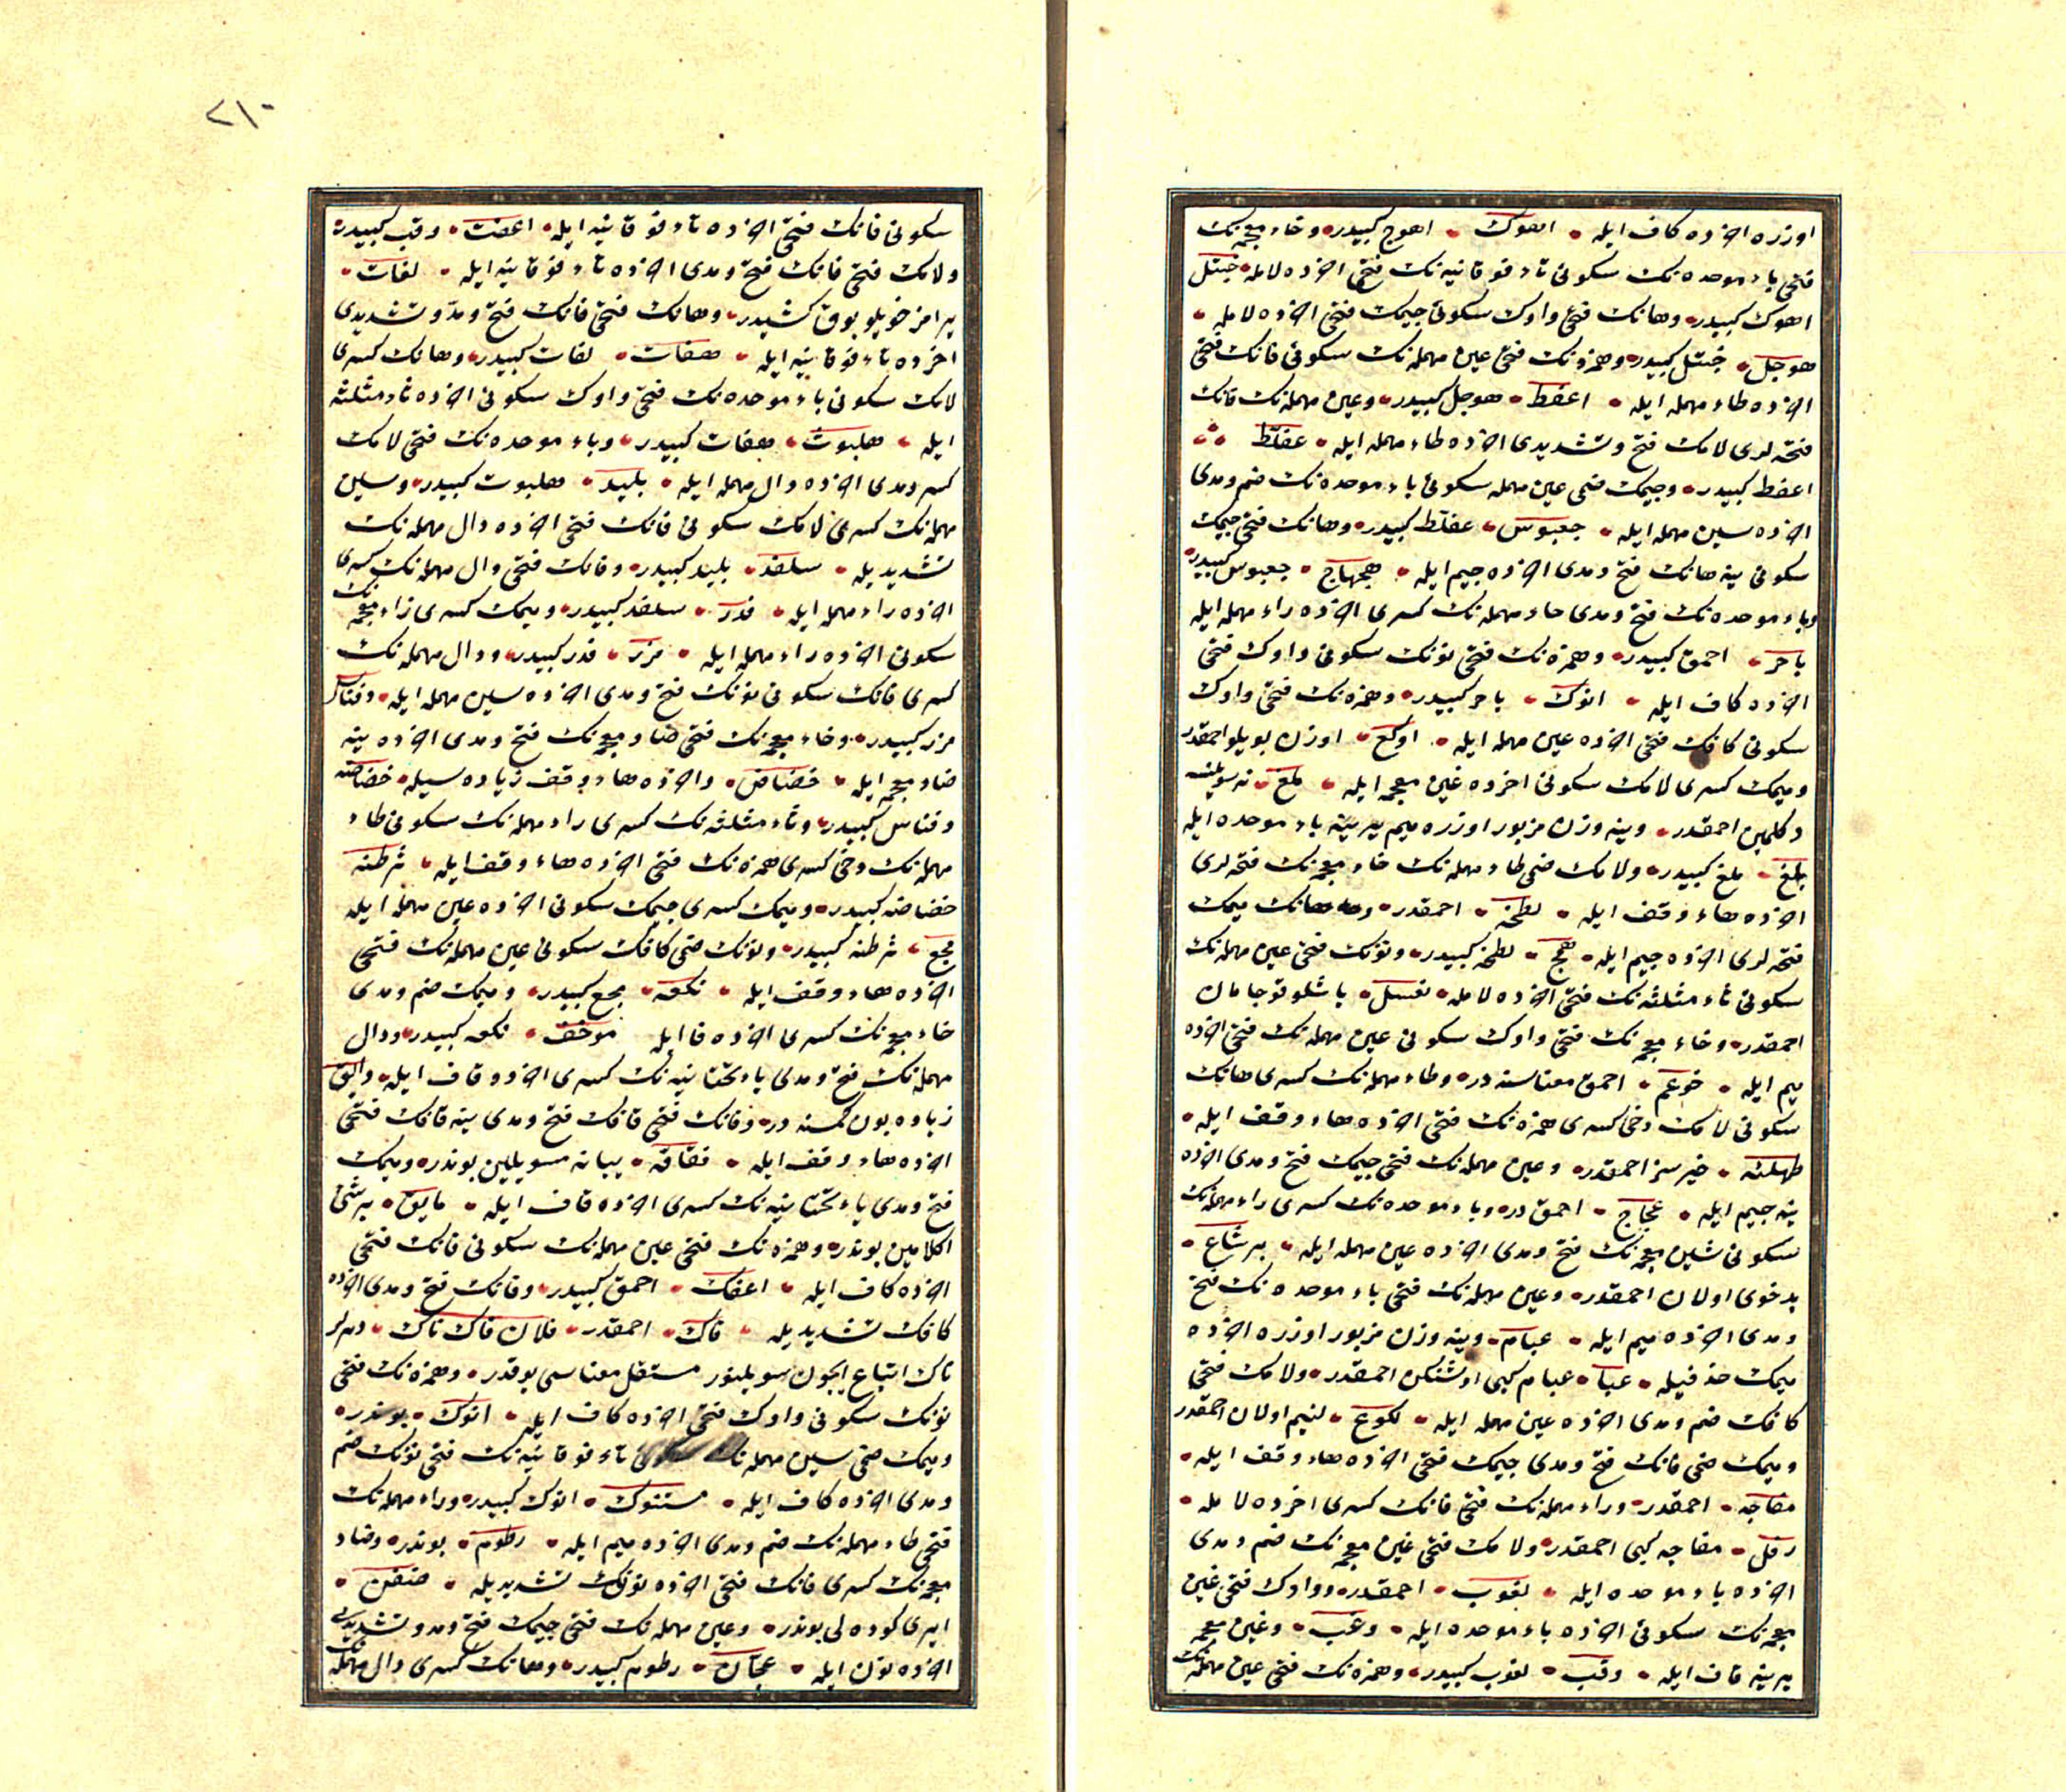 اوزره اخرده كاف ايله اهوك اهوج كبيدر وخاء معجمه نك
فتحى باء موحده نك سكونى تاء فوقانيه نك فتحى اخرده لامله خبتل
اهوك كبيدر وهانك فتحى واوك سكونى جيمك فتحى اخرده لامله
هوجل خبتل كبيدر وهمزه نك فتحى عين مهمله نك سكونى فانك فتحى
اخرده طاء مهمله ايله اعفط هوجل كبيدر وعين مهمله نك فانك
فتحه لرى لامك فتح وتشديدى اخرده طاء مهمله ايله عفلط
اعفط كبيدر وجيمك ضمى عين مهمله سكونى باء موحده نك ضم ومدى
اخرده سين مهمله ايله جعبوس عفلط كبيدر وهانك فتحى جيمك
سكونى ينه هانك فتح ومدى اخرده جيم ايله هجهاج جعبوس كبيدر
وباء موحده نك فتح ومدى حاء مهمله نك كسرى اخرده راء مهمله ايله
باحر احمق كبيدر وهمزه نك فتحى نونك سكونى واوك فتحى
اخرده كاف ايله انوك باحر كبيدر وهمزه نك فتحى واوك
سكونى كافك فتحى اخرده عين مهمله ايله اوكع اوزن بويلو احمقدر
وميمك كسرى لامك سكونى اخرده غين معجمه ايله ملغ نه سويلسه
دكلمين احمقدر وينه وزن مزبور اوزره ميم يرينه باء موحده ايله
بلغ ملغ كبيدر ولامك ضمى طاء مهمله نك خاء معجمه نك فتحه لرى
اخرده هاء وقف ايله لطخه احمقدر وهانك ميمك
فتحه لرى اخرده جيم ايله همج لطخه كبيدر ونونك فتحى عين مهمله نك
سكونى ثاء مثلثه نك فتحى اخرده لامله نعسل باشلو قوجامان
احمقدر وخاء معجمه نك فتحى واوك سكونى عين مهمله نك فتحى اخرده
ميم ايله خوعم احمق معناسنه در وطاء مهمله نك كسرى هانك
سكونى لامك دخى كسرى همزه نك فتحى اخرده هاء وقف ايله
طهلئه خيرسز احمقدر وعين مهمله نك فتحى جيمك فتح ومدى اخرده
ينه جيم ايله عجاج احمق در وباء موحده نك كسرى راء مهمله نك
سكونى شين معجمه نك فتح ومدى اخرده عين مهمله ايله برشاع
بدخوى اولان احمقدر وعين مهمله نك فتحى باء موحده نك فتح
ومدى اخرده ميم ايله عبام وينه وزن مزبور اوزره اخرده
ميمك حذفيله عبا عبام كبى احمقدر ولامك فتحى
كافك ضم ومدى اخرده عين مهمله ايله لكوع لئيم اولان احمقدر
وميمك ضمى فانك فتح ومدى جيمك فتحى اخرده هاء وقف ايله
مفاجه احمقدر وراء مهمله نك فتحى فانك كسرى اخرده لامله
رفل مفاجه كبى احمقدر ولامك فتحى غين معجمه نك ضم ومدى
اخرده باء موحده ايله لغوب احمقدر وواوك فتحى غين
معجمه نك سكونى اخرده باء موحده ايله وغب وغين معجمه
يرينه قاف ايله وقب لغوب كبيدر وهمزه نك فتحى عين مهمله نك
٢١٠
سكونى فانك فتحى اخرده تاء فوقانيه ايله اعفت وقب كبيدر
ولامك فتحى فانك فتح ومدى اخرده تاء فوقانيه ايله لفات
يرامز خويلو بوق كشيدر وهانك فتحى فانك فتح ومد وتشديدى
اخرده تاء فوقانيه ايله هفات لفات كبيدر وهانك كسرى
لامك سكونى باء موحده نك فتحى واوك سكونى اخرده ثاء مثلثه
ايله هلبوث هفات كبيدر وباء موحده نك فتحى لامك
كسر ومدى اخرده دال مهمله ايله بليد هلبوث كبيدر وسين
مهمله نك كسرى لامك سكونى فانك فتحى اخرده دال مهمله نك
تشديديله سلفد بليد كبيدر وفانك فتحى دال مهمله نك كسرى
اخرده راء مهمله ايله فدر سلفد كبيدر وميمك كسرى زاء معجمه نك
سكونى اخرده راء مهمله ايله مزر فدر كبيدر ودال مهمله نك
كسرى فانك سكونى نونك فتح ومدى اخرده سين مهمله ايله دفناس
مزر كبيدر وخاء معجمه نك فتحى ضاد معجمه نك فتح ومدى اخرده ينه
ضاد معجمه ايله خضاض واخرده هاء وقف زياده سيله خضاضه
دفناس كبيدر وثاء مثلثه نك كسرى راء مهمله نك سكونى طاء
مهمله نك دخى كسرى همزه نك فتحى اخرده هاء وقف ايله ثرطئه
خضاضه كبيدر وميمك كسرى جيمك سكونى اخرده عين مهمله ايله
مجع ثرطئه كبيدر ونونك ضمى كافك سكونى عين مهمله نك فتحى
اخرده هاء وقف ايله نكعه مجع كبيدر وميمك ضم ومدى
خاء معجمه نك كسرى اخرده فا ايله موخف نكعه كبيدر ودال
مهمله نك فتح ومدى ياء تحتانيه نك كسرى اخرده قاف ايله دايق
زياده بون كمسنه در وفانك فتحى قافك فتح ومدى ينه قافك فتحى
اخرده هاء وقف ايله فقاقه يبانه سويلين بوندر وميمك
فتح ومدى ياء تحتانيه نك كسرى اخرده قاف ايله مايق برشئ
اكلامين بوندر وهمزه نك فتحى عين مهمله نك سكونى فانك فتحى
اخرده كاف ايله اعفك احمق كبيدر وفانك فتح ومدى اخرده
كافك تشديديله فاك احمقدر فلان فاك تاك ديرلر
تاك اتباع ايچون سويلنور مستقل معناسى يوقدر وهمزه نك فتحى
نونك سكونى واوك فتحى اخرده كاف ايله انوك بوندر
وميمك ضمى سين مهمله نك سكونى تاء فوقانيه نك فتحى نونك ضم
ومدى اخرده كاف ايله مستنوك انوك كبيدر وراء مهمله نك
فتحى طاء مهمله نك ضم ومدى اخرده ميم ايله رطوم بوندر وضاد
معجمه نك كسرى فانك فتحى اخرده نونك تشديديله ضفن
ايرى كوده لى بوندر وعين مهمله نك فتحى جيمك فتح ومد وتشديدى
اخرده نون ايله عجان رطوم كبيدر وهانك كسرى دال مهمله نك